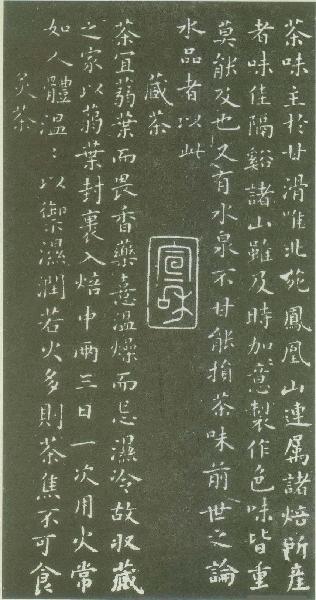 茶味主於甘滑唯北苑鳳凰山連属諸焙所產
者味佳隔谿諸山雖及時加意製作色味皆重
莫能及也又有水泉不甘能損茶味前世之論
水品者以此
藏茶
宣和
茶宜蒻葉而畏香藥憙溫燥而忌濕冷故收藏
之家以蒻葉封裹入焙中兩三日一次用火常
如人體溫〻以禦濕潤若火多則茶焦不可食
炙茶